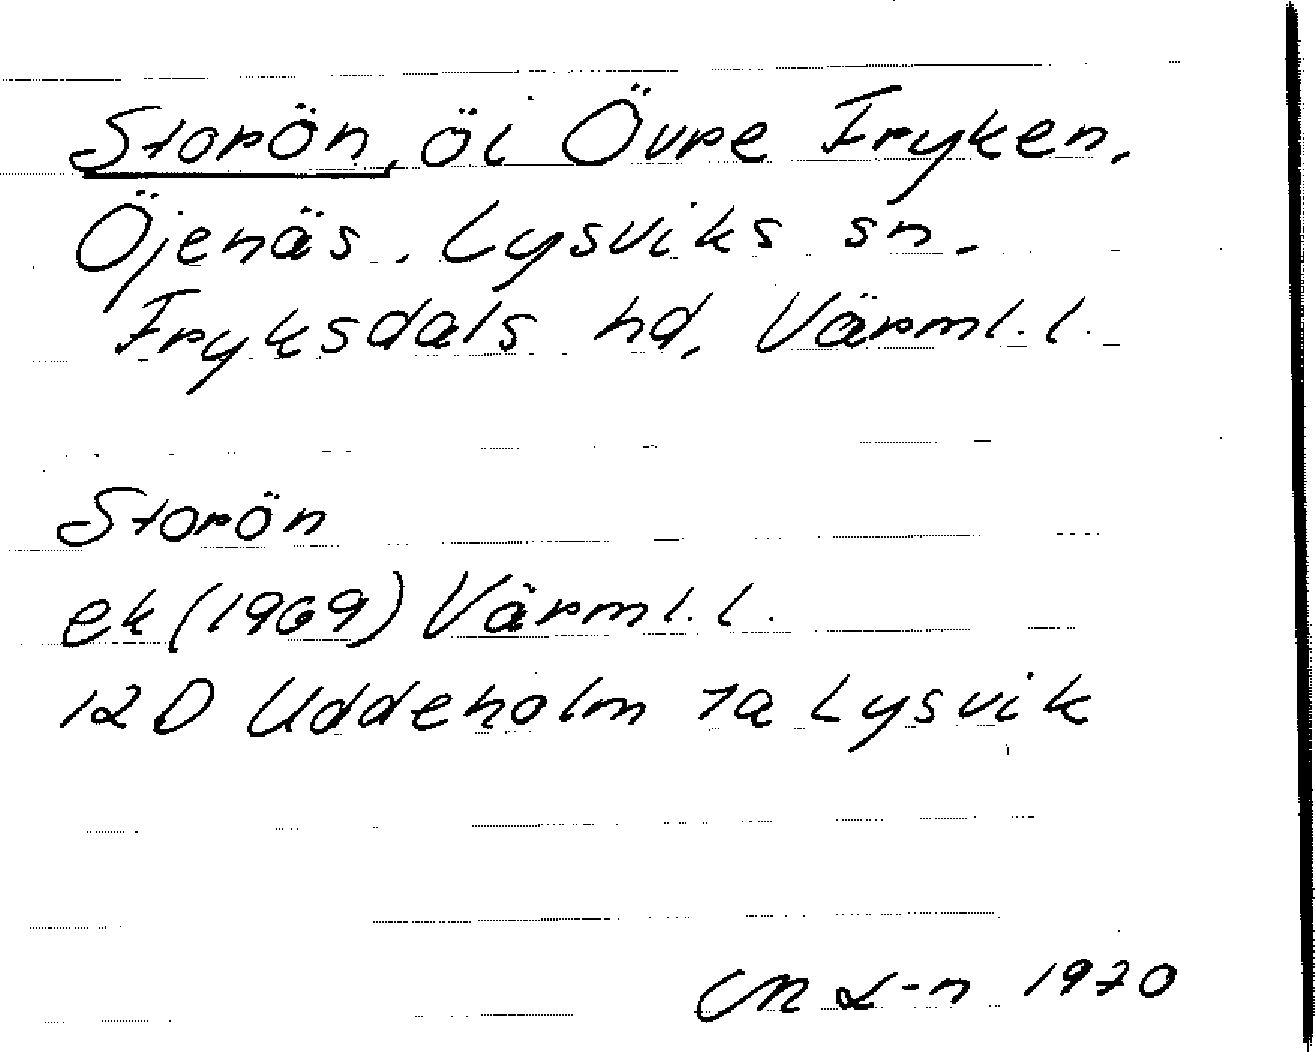 Storön, ö i Övre Fryken,
Öjenäs. Lysviks sn.
Fryksdals hd, Värml. l.
Storön
ek (1969) Värml. l.
12D Uddeholm 7a Lysvik
1970